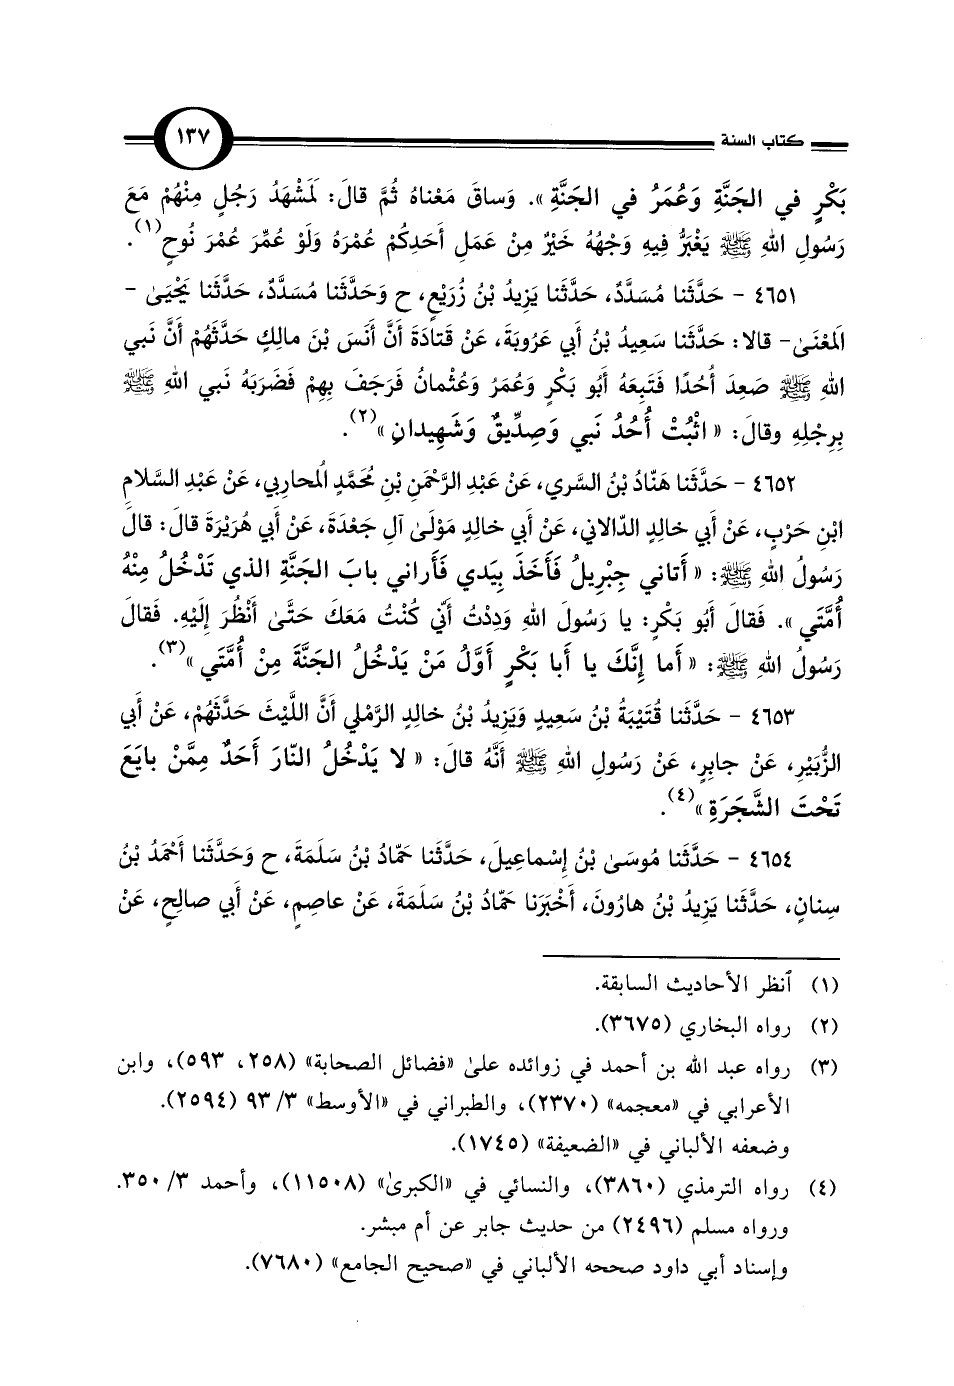 كتاب السنة
١٣٧
بَكْرٍ في الجَنَّةِ وَعُمَرُ في الجَنَّةِ». وَساقَ مَعْناهُ ثُمَّ قالَ: لَمَشْهَدُ رَجُلٍ مِنْهُمْ مَعَ
رَسُولِ اللهِ ﷺ يَغْبَرُّ فِيهِ وَجْهُهُ خَيْرٌ مِنْ عَمَلِ أَحَدِكُمْ عُمْرَهُ وَلَوْ عُمِّرَ عُمْرَ نُوحٍ(١).
٤٦٥١ - حَدَّثَنا مُسَدَّدٌ، حَدَّثَنا يَزِيدُ بْنُ زُرَيْعٍ، ح وَحَدَّثَنا مُسَدَّدٌ، حَدَّثَنا يَحْيَىٰ -
المَعْنَىٰ- قالا: حَدَّثَنا سَعِيدُ بْنُ أَبي عَرُوبَةَ، عَنْ قَتادَةَ أَنَّ أَنَسَ بْنَ مالِكٍ حَدَّثَهُمْ أَنَّ نَبي
اللهِ ﷺ صَعِدَ أُحُدًا فَتَبِعَهُ أَبُو بَكْرٍ وَعُمَرُ وَعُثْمانُ فَرَجَفَ بِهِمْ فَضَرَبَهُ نَبي اللهِ ﷺ
بِرِجْلِهِ وقالَ: « اثْبُتْ أُحُدُ نَبي وَصِدِّيقٌ وَشَهِيدانِ »(٢).
٤٦٥٢ - حَدَّثَنا هَنّادُ بْنُ السَّري، عَنْ عَبْدِ الرَّحْمَنِ بْنِ مُحَمَّدٍ المُحاربي، عَنْ عَبْدِ السَّلامِ
ابْنِ حَرْبٍ، عَنْ أَبي خالِدٍ الدّالاني، عَنْ أَبي خالِدٍ مَوْلَىٰ آلِ جَعْدَةَ، عَنْ أَبي هُرَيْرَةَ قالَ: قالَ
رَسُولُ اللهِ ﷺ: « أَتاني جِبْرِيلُ فَأَخَذَ بِيَدي فَأَراني بابَ الجَنَّةِ الذي تَدْخُلُ مِنْهُ
أُمَّتَي ». فَقالَ أَبُو بَكْرٍ: يا رَسُولَ اللهِ وَدِدْتُ أَنّي كُنْتُ مَعَكَ حَتَّىٰ أَنْظُرَ إِلَيْهِ. فَقالَ
رَسُولُ اللهِ ﷺ: « أَما إِنَّكَ يا أَبا بَكْرٍ أَوَّلُ مَنْ يَدْخُلُ الجَنَّةَ مِنْ أُمَّتَي »(٣).
٤٦٥٣ - حَدَّثَنا قُتَيْبَةُ بْنُ سَعِيدٍ وَيَزِيدُ بْنُ خالِدٍ الرَّمْلي أَنَّ اللَّيْثَ حَدَّثَهُمْ، عَنْ أَبي
الزُّبَيْرِ، عَنْ جابِرٍ، عَنْ رَسُولِ اللهِ ﷺ أَنَّهُ قالَ: « لا يَدْخُلُ النّارَ أَحَدٌ مِمَّنْ بايَعَ
تَحْتَ الشَّجَرَةِ »(٤).
٤٦٥٤ - حَدَّثَنا مُوسَىٰ بْنُ إِسْماعِيلَ، حَدَّثَنا حَمّادُ بْنُ سَلَمَةَ، ح وَحَدَّثَنا أَحْمَدُ بْنُ
سِنانٍ، حَدَّثَنا يَزِيدُ بْنُ هارُونَ، أَخْبَرَنا حَمّادُ بْنُ سَلَمَةَ، عَنْ عاصِمٍ، عَنْ أَبي صالِحٍ، عَنْ
(١) ٱنظر الأحاديث السابقة.
(٢) رواه البخاري (٣٦٧٥).
(٣) رواه عبد الله بن أحمد في زوائده علىٰ «فضائل الصحابة» (٢٥٨، ٥٩٣)، وابن
الأعرابي في «معجمه» (٢٣٧٠)، والطبراني في «الأوسط» ٣/ ٩٣ (٢٥٩٤).
وضعفه الألباني في «الضعيفة» (١٧٤٥).
(٤) رواه الترمذي (٣٨٦٠)، والنسائي في «الكبرىٰ» (١١٥٠٨)، وأحمد ٣/ ٣٥٠.
ورواه مسلم (٢٤٩٦) من حديث جابر عن أم مبشر.
وإسناد أبي داود صححه الألباني في «صحيح الجامع» (٧٦٨٠).